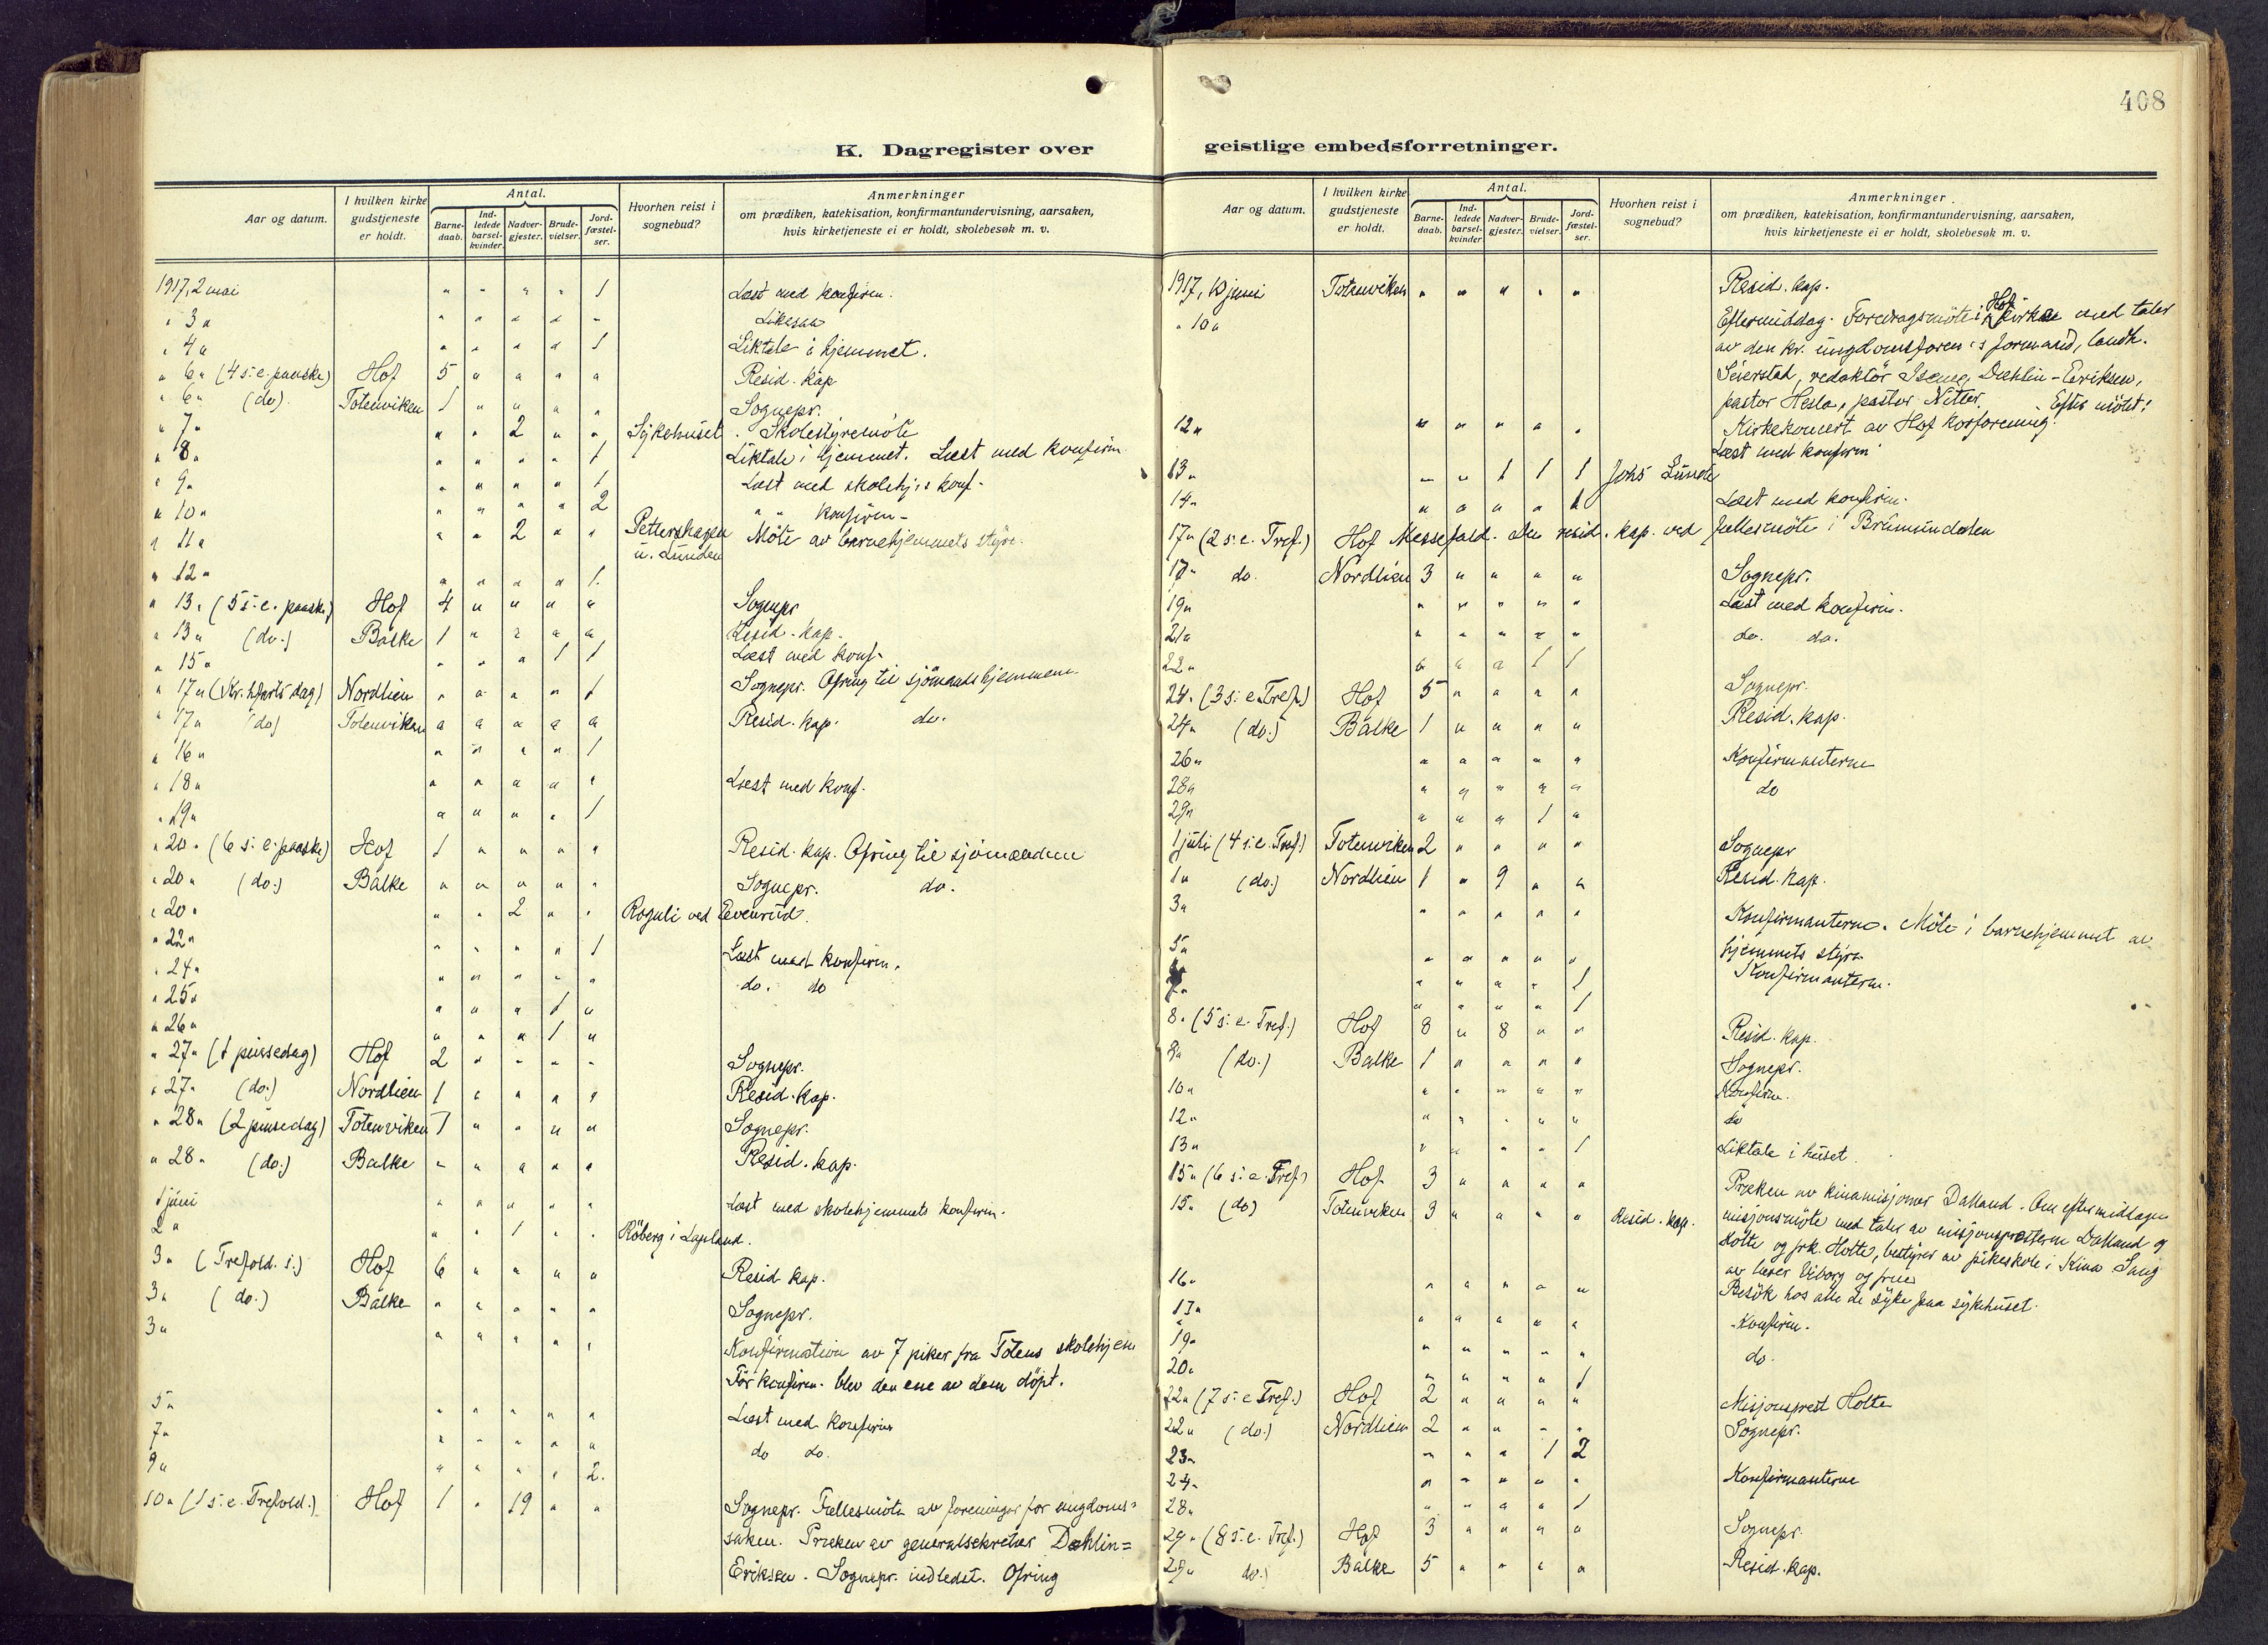 408
K. Dagregister over
geistlige embedsforretninger.
Aar og datum.
I hvilken kirke gudstjeneste er holdt.
Antal.
Barnedaab.
Indledede barselkvinder.
Nadvergjester.
Brudevielser.
Jordfæstelser.
Hvorhen reist i sognebud?
Anmerkninger
om prædiken, katekisation, konfirmantundervisning, aarsaken,
hvis kirketjeneste ei er holdt, skolebesøk m. v.
1917, 2 mai " " " " 1 Læst med konfirm.
" 3 " " " " " " Likesaa
" 4 " " " " " 1 Liktale i hjemmet.
" 6 " (4 s. e. paaske) Hof 5 " " " " Resid. kap
" 6 " (do) Totenviken 1 " " " " Sognepr.
" 7 " " " 2 " " Sykehuset. Skolestyremöte
" 8 " " " " " 1 Liktale i hjemmet. Læst med konfirm
" 9 " " " " " 1 Læst med skolehj.s konf.
" 10 " " " " " 2 " " konfirm-
" 11 " " " 2 " " Pettershagen u. Lunden Möte av barnehjemmets styre.
" 12 " " " " " 1.
" 13 " (5 s. e. paaske) Hof 4 " " " " Sognepr
" 13 " (do.) Balke 1 " " " " Resid. kap.
" 15 " " " " 1 1 Læst med konf.
" 17 " (Kr. hfarts dag) Nordlien " " " " 1 Sognepr. Ofring til sjömandshjemmene
" 17 " (do) Totenviken " " " " " Resid. kap. do.
" 16 " " " " " 1
" 18 " " " " " " Læst med konf.
" 19 " " " " " 1
" 20 " (6 s. e. paaske) Hof 1 " " " " Resid. kap. Ofring til sjömændene
" 20 " (do.) Balke " " " " " Sognepr. do.
" 20 " " " 2 " " Roguli ved Evenrud.
" 22 " " " " " 1 Læst med konfirm.
" 24 " " " " " " do. do
" 25 " " " " 1 "
" 26 " " " " 1 "
" 27 " (1 pinsedag) Hof 2 " " " " Sognepr.
" 27 " (do.) Nordlien 1 " " " " Resid. kap.
" 28 " (2 pinsedag) Totenviken 7 " " " " Sognepr.
" 28 " (do.) Balke " " " " " Resid. kap.
1 juni " " " " " Læst med skolehjemmets konfirm.
2 " " " 1 " " Röberg i Lapland.
3 " (Trefold. s.) Hof 6 " " " " Resid kap.
3 " (do.) Balke " " " " " Sognepr.
3 " " " " " " Konfirmation av 7 piker fra Totens skolehjem
För konfirm. blev den ene av dem döpt.
5 " " " " " " Læst med konfirm
7 " " " " " " do do.
9 " " " " " 2.
10 " (1 s. e. Trefold.) Hof 1 " 19 " " Sognepr. Fællesmöte av foreninger for ungdoms=
saken. Præken av generalsekretær Dæhlin=
Eriksen. Sognepr. indledet. Ofring
Aar og datum.
I hvilken kirke gudstjeneste er holdt.
Antal.
Barnedaab.
Indledede barselkvinder
Nadvergjester.
Brudevielser.
Jordfæstelser.
Hvorhen reist i sognebud?
Anmerkninger.
om prædiken, katekisation, konfirmantundervisning, aarsaken,
hvis kirketjeneste ei er holdt, skolebesøk m. v.
1917, 10 juni Totenviken " " " " " Resid. kap.
" 10 " Eftermiddag. Foredragsmöte i Hof kirke med taler
av den kr. ungdomsforen.s formand, landh.
Seierstad, redaktör Dæhlin-Eriksen,
pastor Hesla, pastor Nitter. Efter mötet:
Kirkekoncert av Hof korforening.
12 " " " " " " Læst med konfirm
13 " " " 1 1 1 Johs Lunde
14 " " " " " 1 Læst med konfirm.
17 " (2 s. e. Tref.) Hof Messefald. Den resid. kap. ved fællesmöte i Brumunddalen
17 " do. Nordlien 3 " " " " Sognepr.
19 " " " " " " Læst med konfirm.
21 " " " " " " do. do.
22 " " " " 1 1
24 " (3 s. e. Tref.) Hof 5 " " " " Sognepr.
24 " (do.) Balke 1 " " " " Resid. kap.
26 " " " " " " Konfirmanterne
28 " " " " " " do
29 " " " " 1 "
1 juli (4 s. e. Tref.) Totenviken 2 " " " " Sognepr
1 " (do.) Nordlien 1 " 9 " " Resid. kap.
3 " " " " " " Konfirmanterne. Möte i barnehjemmet av
hjemmets styre.
5 " " " " " " Konfirmanterne.
" " " " 1
7 " " " " " 1
8 " (5 s. e. Tref.) Hof 8 " 8 " " Resid. kap.
8 " (do.) Balke 1 " " " " Sognepr.
10 " " " " " " Konfirm.
12 " " " " " " do
13 " " " " " 1 Liktale i huset.
15 " (6 s. e. Tref) Hof 3 " " " " Præken av kinamisjonær Dalland. Om eftermiddagen
15 " (do) Totenviken 3 " " " " Resid. kap. misjonsmöte med taler av misjonsprestene Dalland og
Holte og frk. Holte, bestyrer av pikeskole i Kina Sang
av lærer Viborg og frue
16 " " " " " " Besök hos alle de syke paa sykehuset.
17 " " " " " " Konfirm.
19 " " " " " " do.
20 " " " " " 1
22 " (7 s. e Tref.) Hof 2 " " " " Misjonsprest Holte
22 " (do.) Nordlien 2 " " " " Sognepr.
23 " " " " 1 2
24 " " " " " " Konfirmanterne
28 " " " " " 1
29 " (8 s. e. Tref.) Hof 3 " " " " Sognepr.
29 " do.) Balke 5 " " " " Resid. kap.